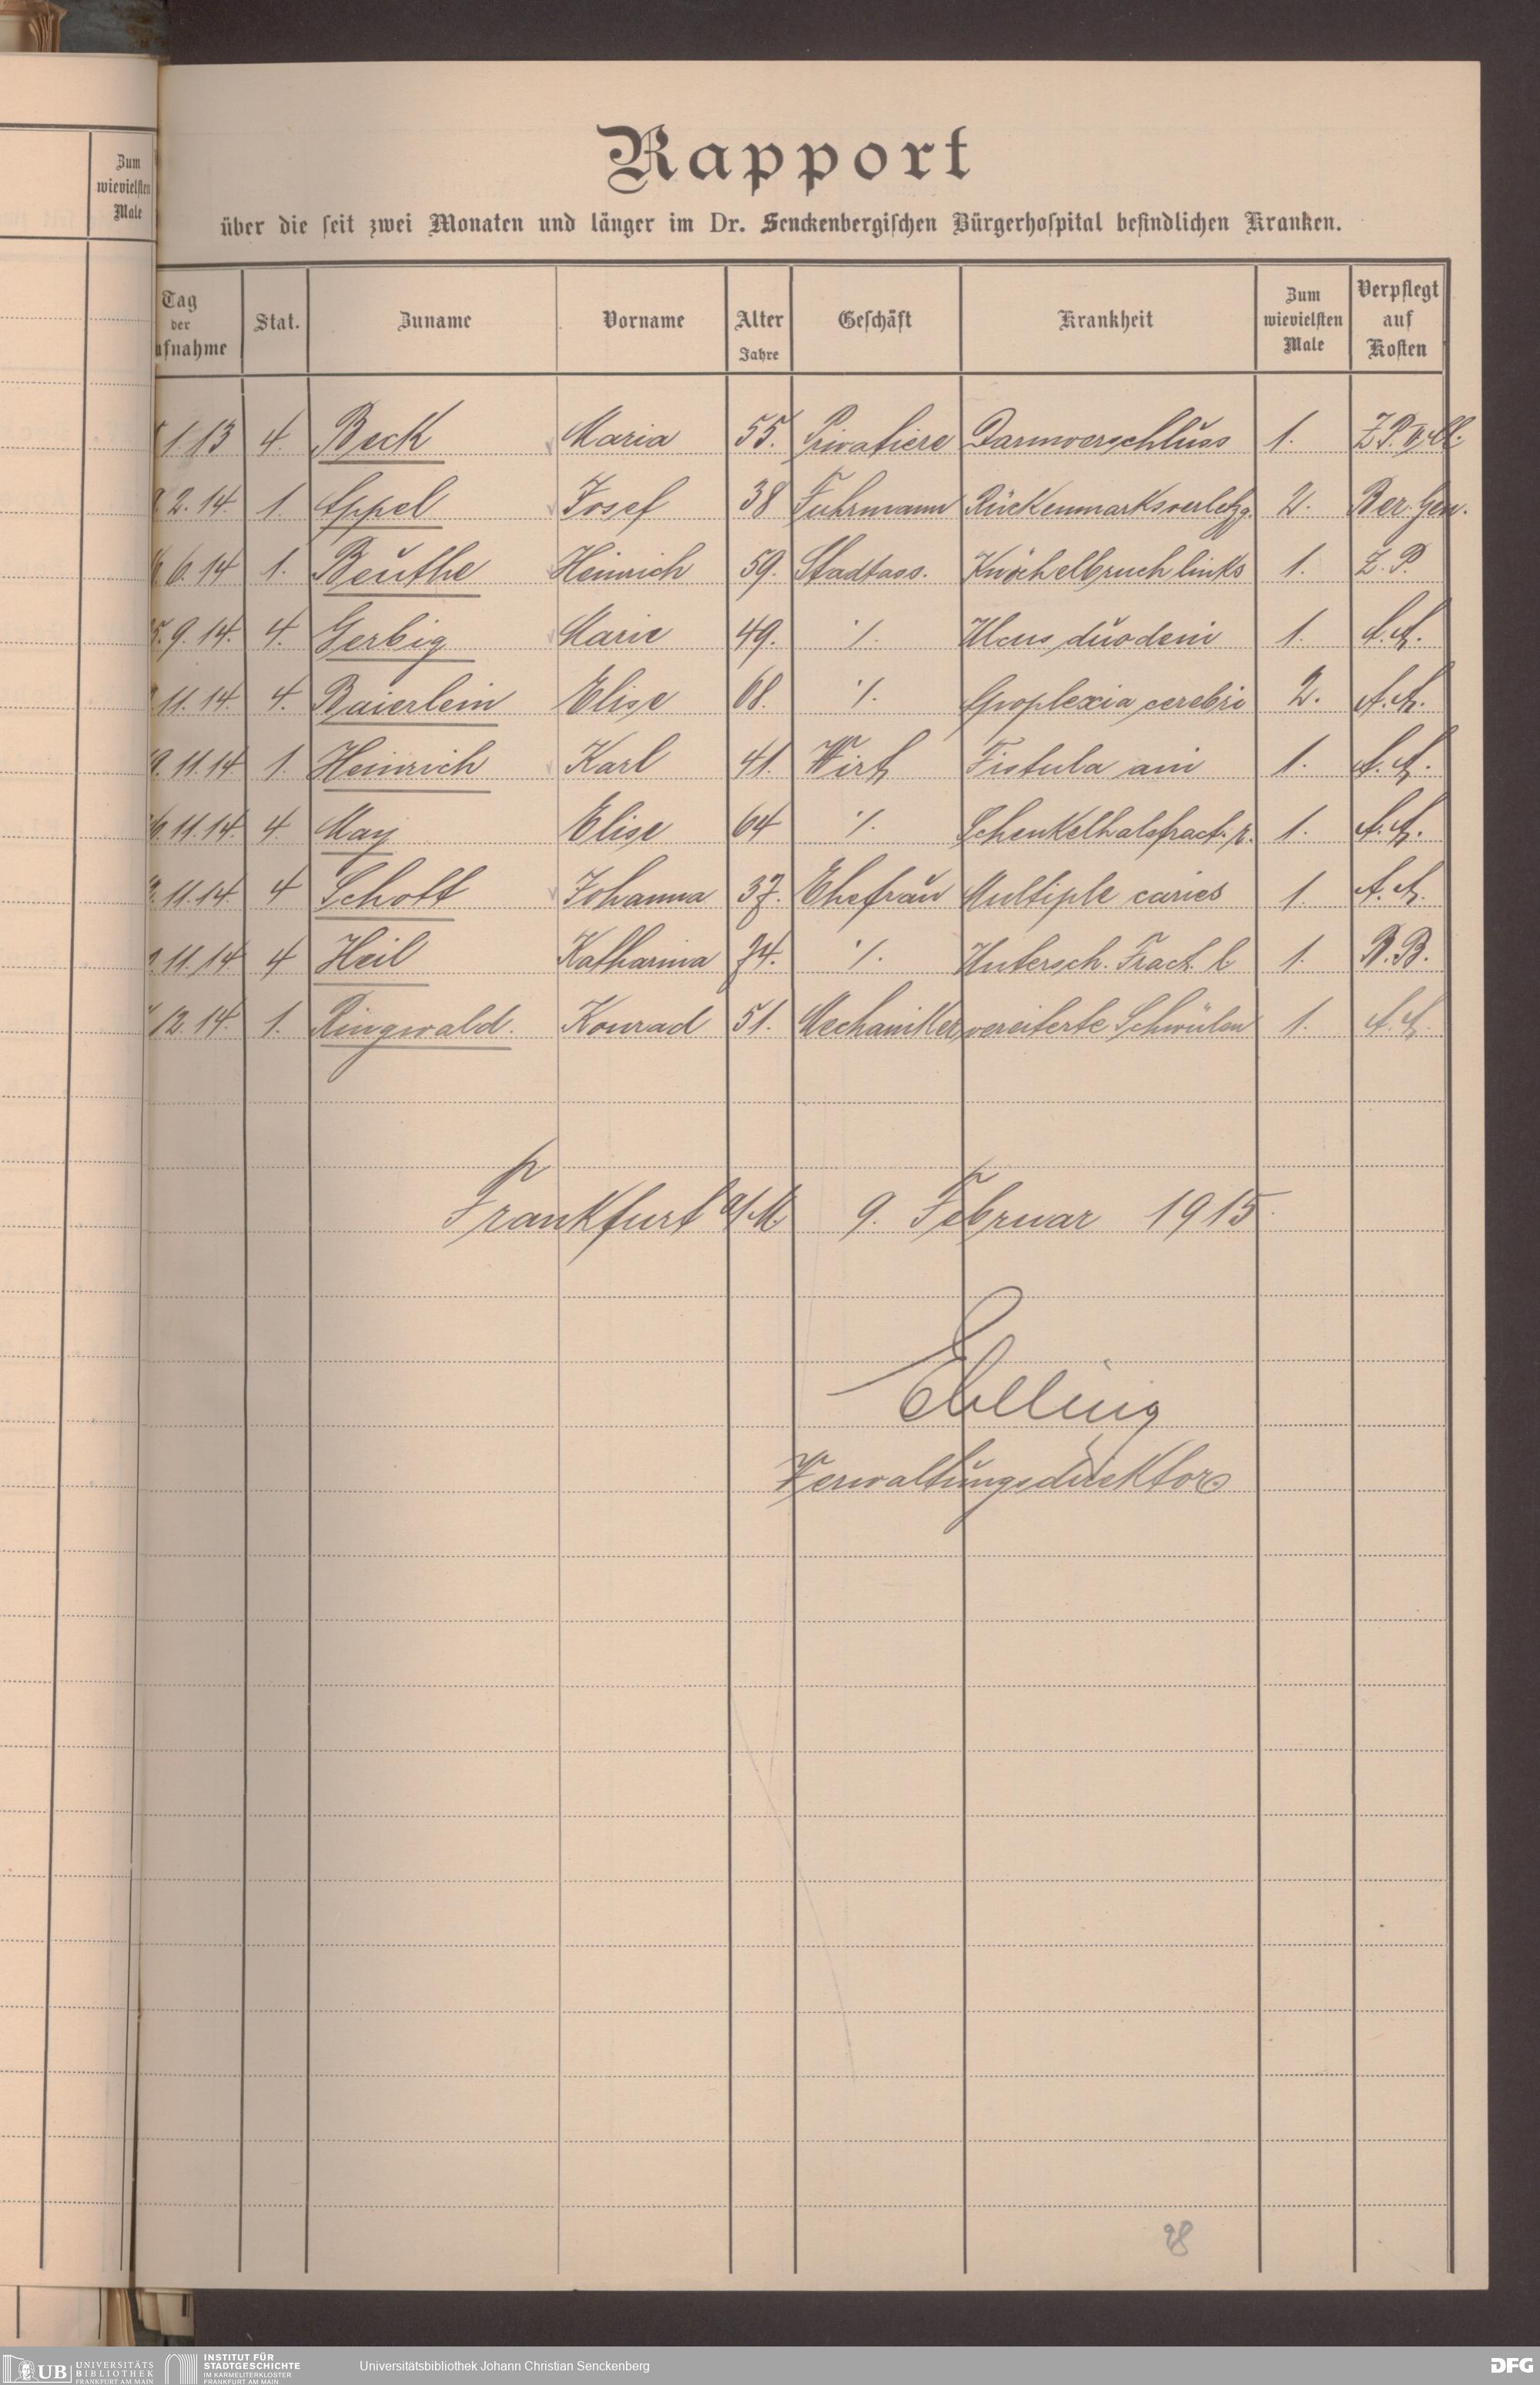 Zum
wievielsten
Male
Rapport
über die seit zwei Monaten und länger im Dr. Senckenbergischen Bürgerhospital befindlichen Kranken.
Tag der ufnahme Stat. Zuname Vorname Alter Jahre Geschäft Krankheit Zum wievielsten Male Verpflegt auf Kosten
1 13 4. Beck Maria 55. Privatiere Darmverschluss 1. Z.P.
2. 14. 1. Appel Josef 38 Fuhrmann Rückenmarksverletzg. 2. Ber. Gen.
6. 14 1. Beuthe Heinrich 59. Stadtass. Knöchelbruch links 1. Z. P.
5. 9. 14. 4. Gerbig Marie 49. ·/. Ulcus duodeni 1. A. A.
11. 14. 4. Baierlein Elise 68. ·/. Apoplexia cerebri 2. A. A.
9. 11. 14 1. Heinrich Karl 41. Wirt Fistula ani 1. A. A.
6. 11. 14. 4 May Elise 64 ·/. Schenkelhalsfract. r. 1. A. A.
11. 14. 4 Schott Johanna 37. Ehefrau Multiple caries 1. A. A.
11. 14 4 Heil Katharina 74. ·/. Untersch. Fract. l. 1. B. B.
12. 14. 1. Ringwald. Konrad 51. Mechaniker vereiterte Schwülen 1. A. A.
Frankfurt a/M 9. Februar 1915.
Ebelling
Verwaltungsdirektor
28
UB UNIVERSITÄTS BIBLIOTHEK FRANKFURT AM MAIN
INSTITUT FÜR STADTGESCHICHTE IM KARMELITERKLOSTER FRANKFURT AM MAIN
Universitätsbibliothek Johann Christian Senckenberg
DFG